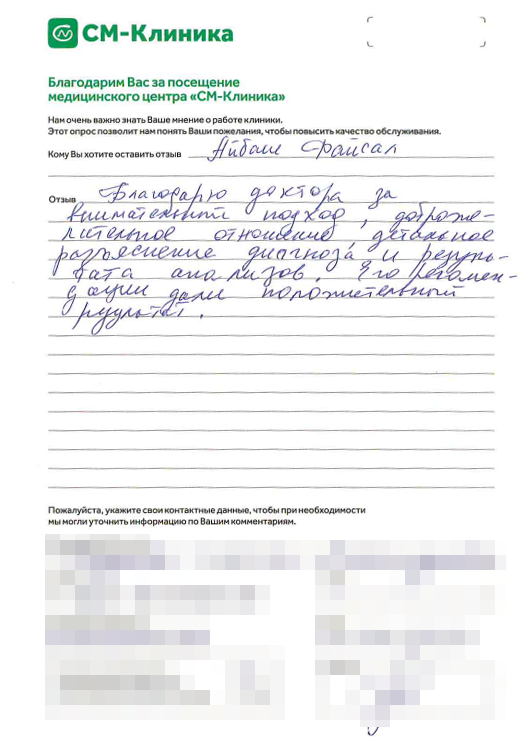 СМ-Клиника
Благодарим Вас за посещение
медицинского центра «СМ-Клиника»
Нам очень важно знать Ваше мнение о работе клиники.
Этот опрос позволит нам понять Ваши пожелания, чтобы повысить качество обслуживания.
Кому Вы хотите оставить отзыв Айбаш Файсал
Отзыв Благодарю доктора за
внимательный подход, доброже-
лательное отношение, детальное
разъяснение диагноза и резуль-
тата анализов. Его рекомен-
дации дали положительный
результат.
Пожалуйста, укажите свои контактные данные, чтобы при необходимости
мы могли уточнить информацию по Вашим комментариям.